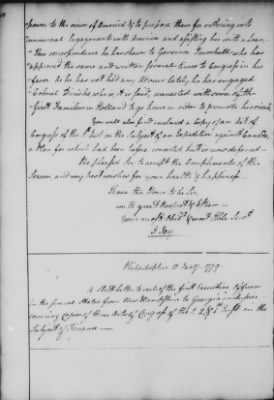 powers to the cause of America & to prepare them for entering into
Commercial Engagements with America and assisting her with a Loan,
This correspondence he has shown to Governor Trumbull who has
approved the same and written several times to Congress in his
favor As he has not had any Answer lately, he has engaged
Colonel Diricks who is, it is said, connected with some of the
Great Families in Holland to go home in order to promote his views
You will also find enclosed a Copy of an Act of
Congress of the 1st Inst on the Subject of an Expedition against Canada,
a Plan for which had been before concerted but is now deferred —
Be pleased Sir to accept the Compliments of the
Season and my best wishes for your health & happiness
I have the Honor to be Sir,
with great Respect & Esteem
Your most Obedt & most Hble Servt
J. Jay
Philadelphia 10 Jany 1779
A Short Letter to each of the first Executive Officers
in the several States from New Hampshire to Georgia inclusive
covering Copies of three Acts of Congress of the 2 & 5th Inst on the
Subject of Finance —